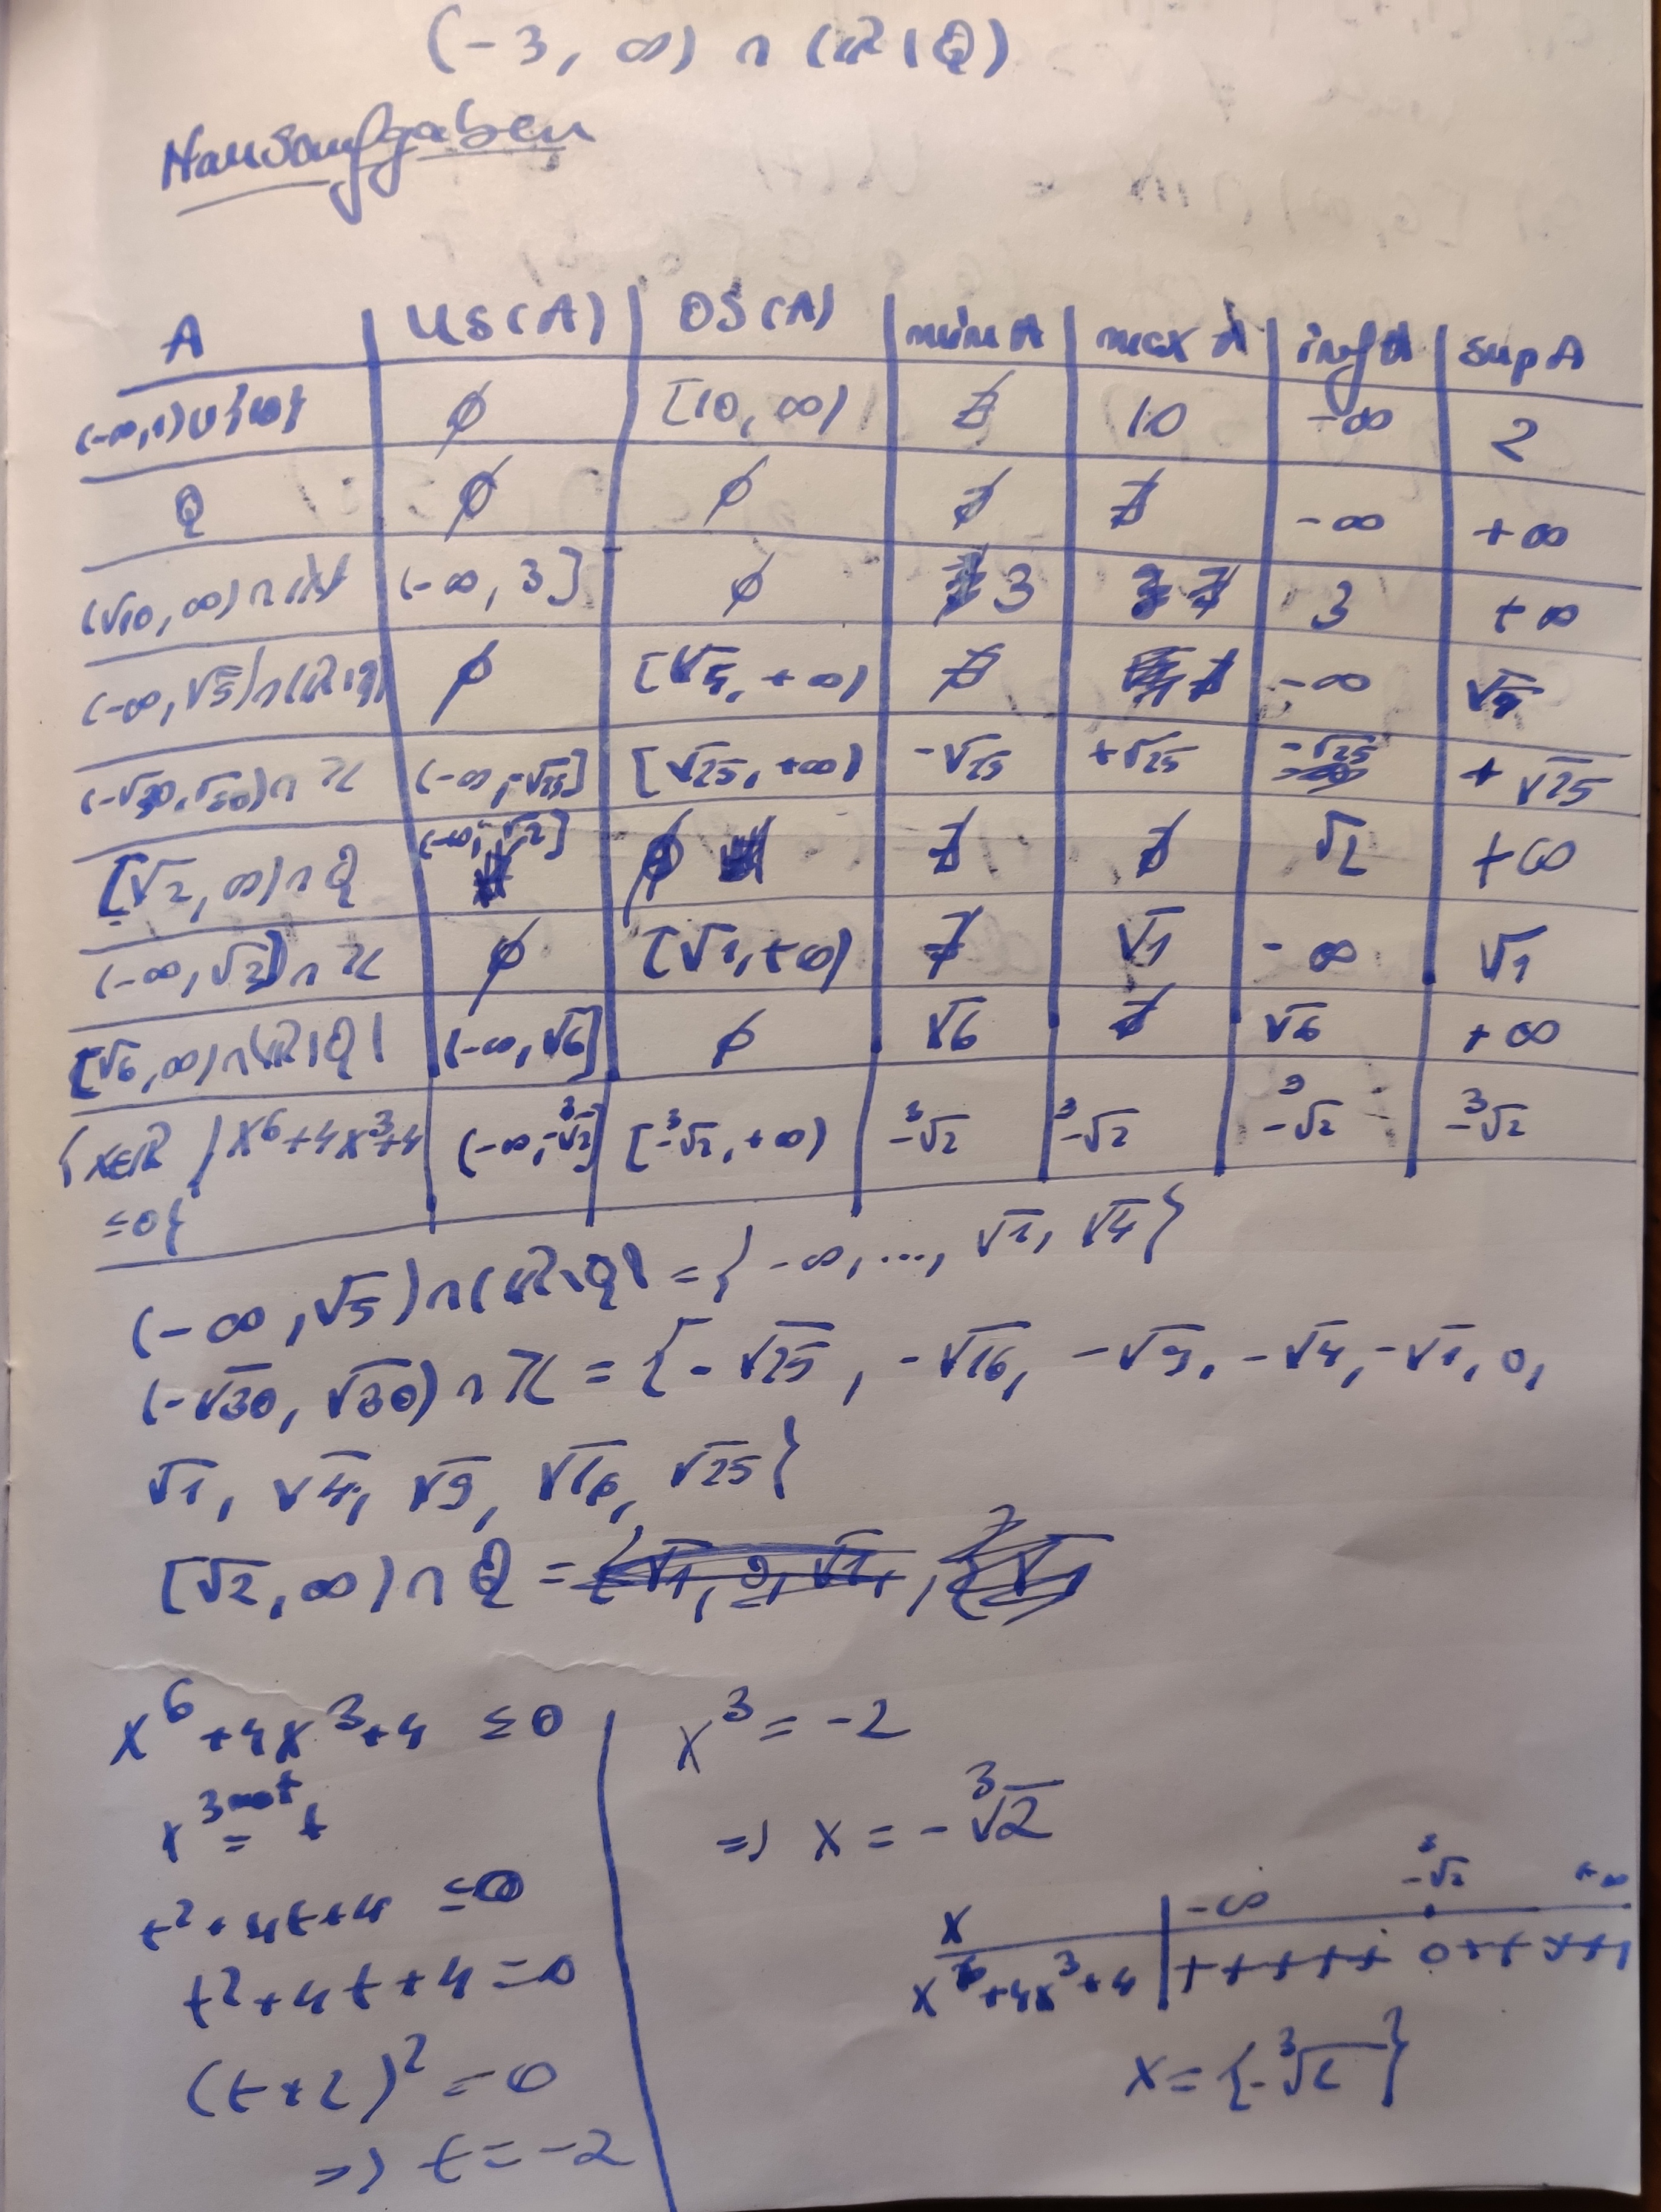 (-3, ∞) ∩ (ℝ \ Q)
Hausaufgaben
A | US(A) | OS(A) | min A | max A | inf A | sup A
(-∞,1)∪{10} | ∅ | [10, ∞) | ∄ | 10 | -∞ | 2
Q | ∅ | ∅ | ∄ | ∄ | -∞ | +∞
(√10, ∞) ∩ ℕ | (-∞, 3] | ∅ | 3 | ∄ | 3 | +∞
(-∞, √5) ∩ (ℝ \ Q) | ∅ | [√5, +∞) | ∄ | ∄ | -∞
(-√30, √30) ∩ ℤ | (-∞, -√25] | [√25, +∞) | -√25 | +√25 | -√25 | +√25
[√2, ∞) ∩ Q | (-∞, √2] | ∅ | ∄ | ∄ | √2 | +∞
(-∞, √3] ∩ ℤ | ∅ | [√1, +∞) | ∄ | √1 | -∞ | √1
[√6, ∞) ∩ (ℝ \ Q) | (-∞, √6] | ∅ | √6 | ∄ | √6 | +∞
{x∈ℝ / x⁶+4x³+4 | (-∞, -∛2] | [-∛2, +∞) | -∛2 | -∛2 | -∛2 | -∛2
≤0}
(-∞, √5) ∩ (ℝ \ Q) = { -∞, ..., √2, √4 }
(-√30, √30) ∩ ℤ = {-√25, -√16, -√9, -√4, -√1, 0,
√1, √4, √9, √16, √25}
[√2, ∞) ∩ Q =
x⁶ + 4x³ + 4 ≤ 0
x³ = t
t² + 4t + 4 ≤ 0
t² + 4t + 4 = 0
(t+2)² = 0
=> t = -2
x³ = -2
=> x = -∛2
x | -∞ -∛2 +∞
x⁶+4x³+4 | + + + + + 0 + + + + +
x = {-∛2}